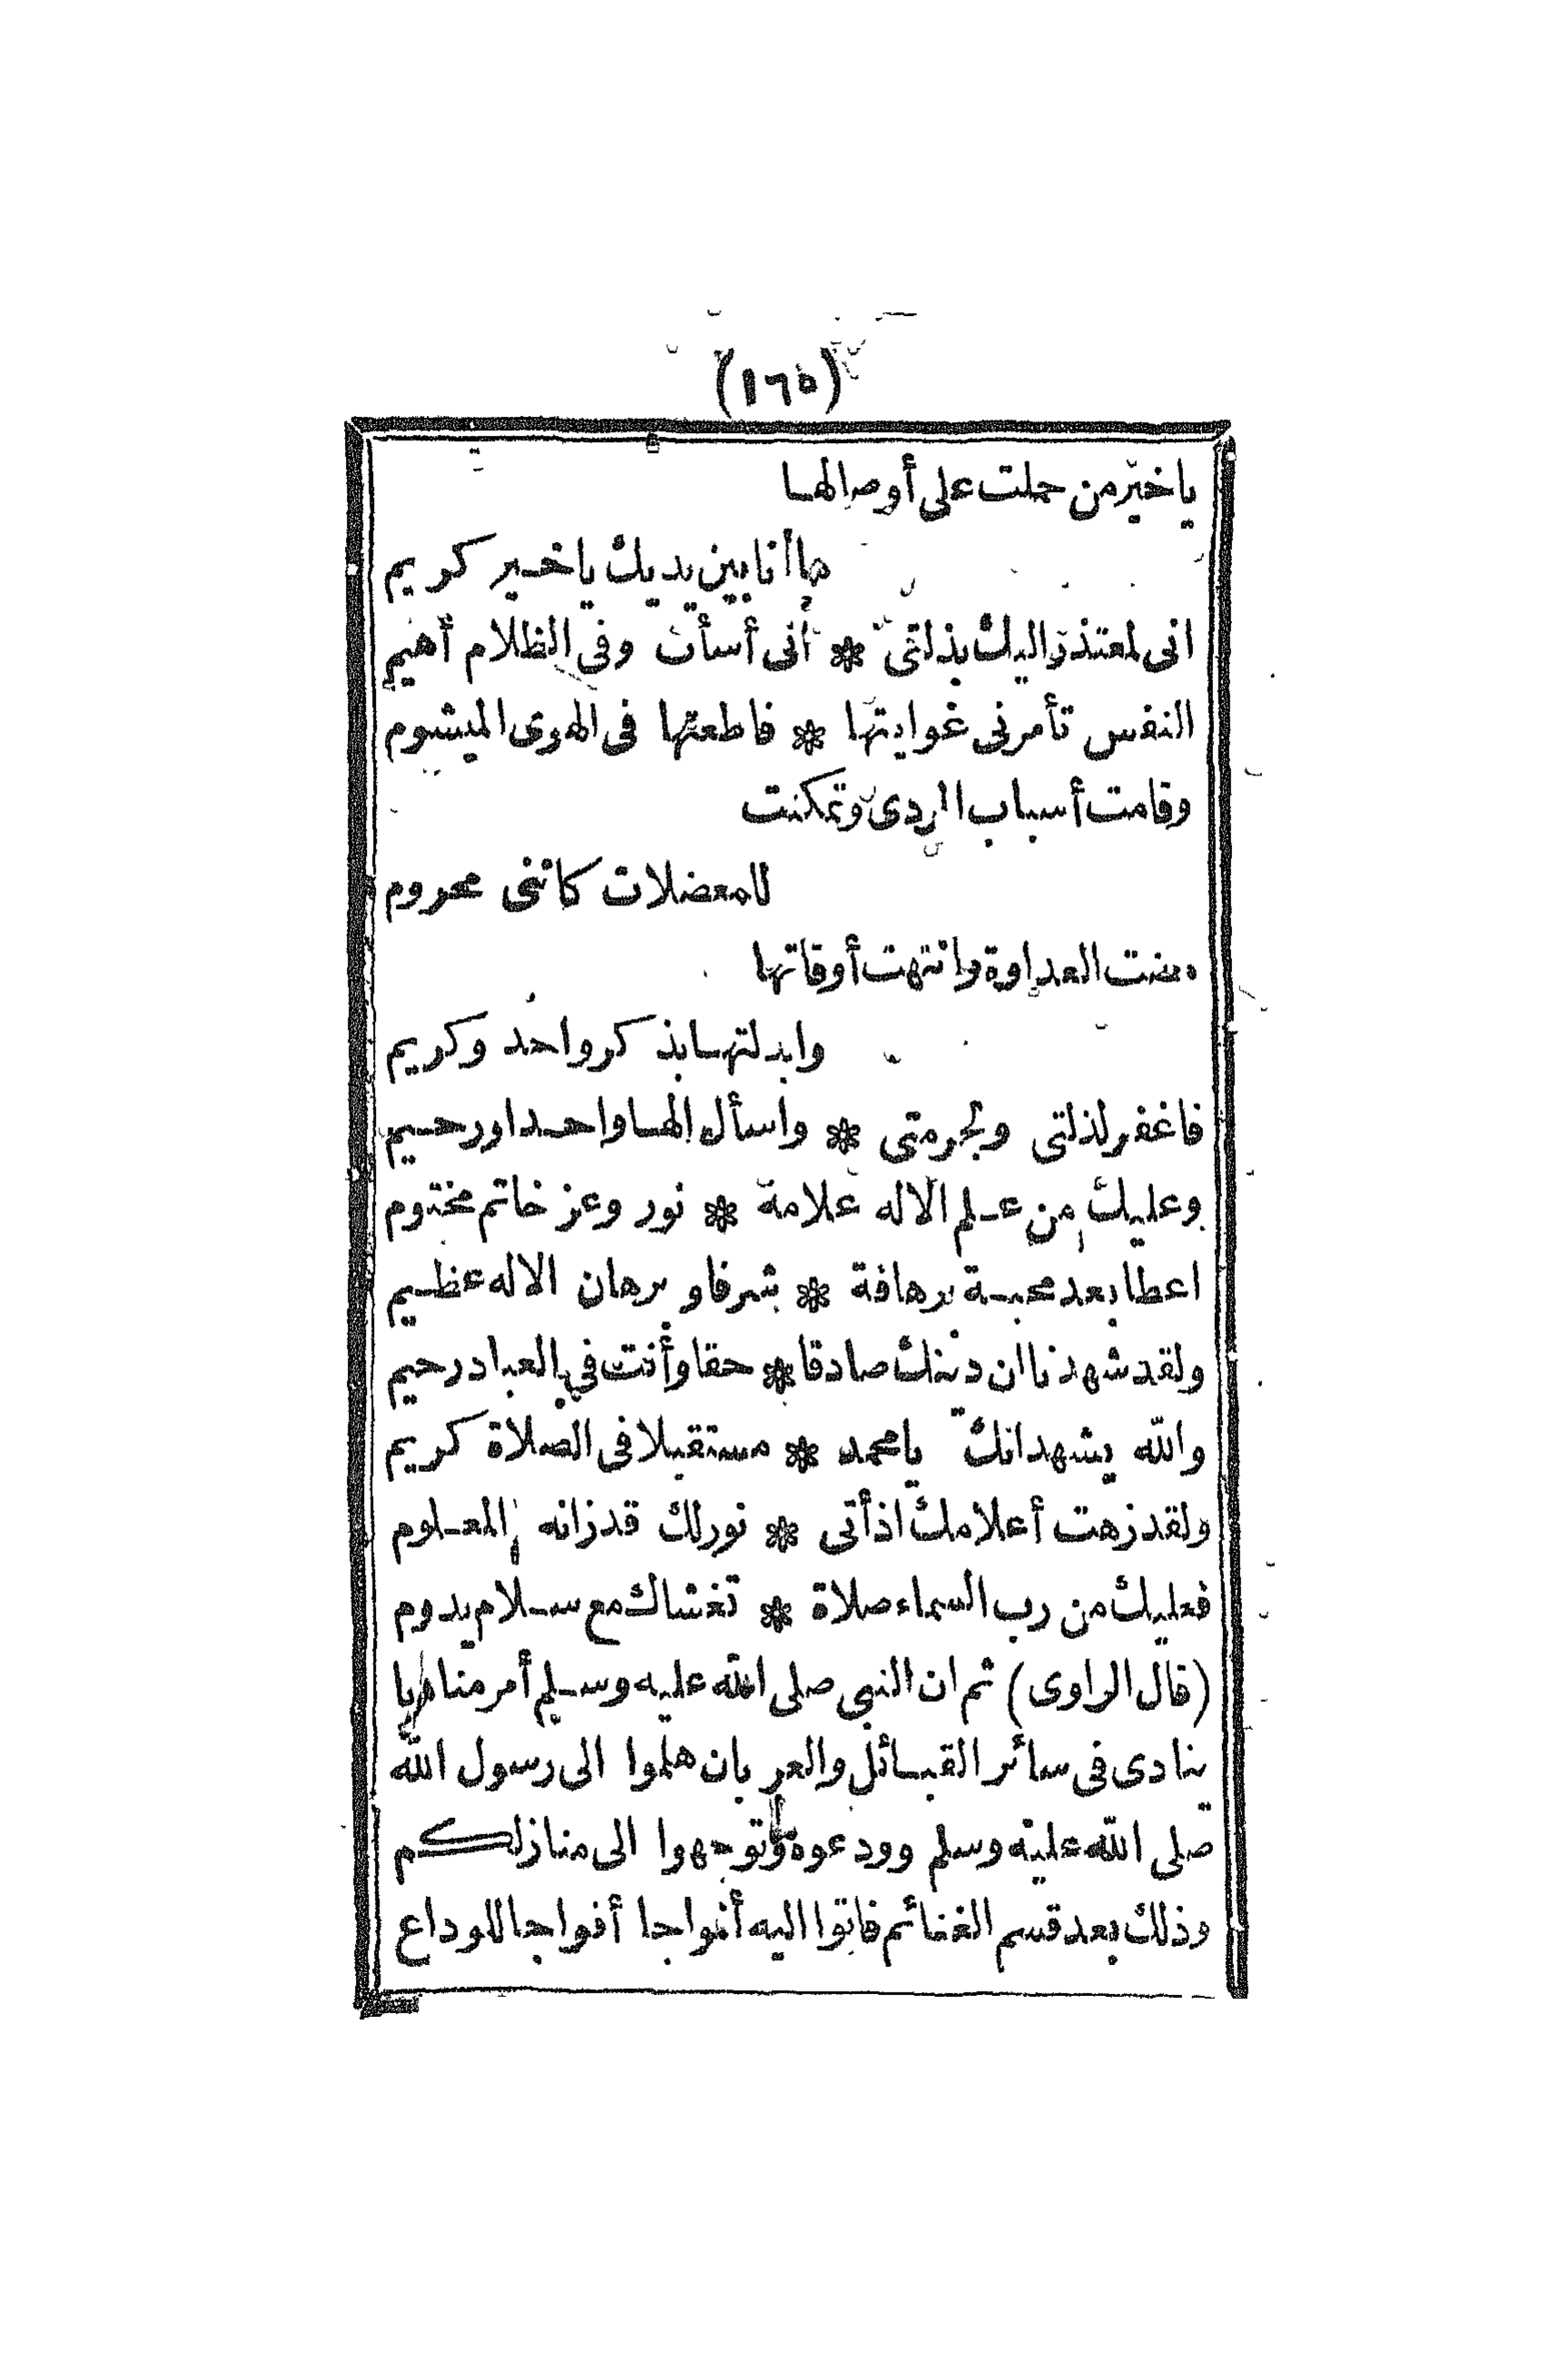 (١٦٥)
ياخير من حملت على أوصالها
ها أنا بين يديك ياخير كريم
انى لمعتذر اليك بذلتى * أنى أسأت وفى الظلام أهيم
النفس تأمرنى غوايتها * فاطعتها فى الهوى الميشوم
وقامت أسباب الردى وتمكنت
للمعضلات كاننى محروم
مضت العداوة وانتهت أوقاتها
وابدلتها بذكر واحد وكريم
فاغفر لذلتى ولجرمتى * واسأل الها واحدا ورحيم
وعليك من علم الاله علامة * نور وعز خاتم مختوم
اعطا بعد محبة برهافة * شرفا وبرهان الاله عظيم
ولقد شهدنا ان دينك صادقا * حقا وأنت في العباد رحيم
والله يشهد انك يا محمد * مستقبلا فى الصلاة كريم
ولقد زهت أعلامك اذ أتى * نور لك قد زانه المعلوم
فعليك من رب السماء صلاة * تغشاك مع سلام يدوم
(قال الراوى) ثم ان النبى صلى الله عليه وسلم أمر مناديا
ينادى فى سائر القبائل والعربان هلموا الى رسول الله
صلى الله عليه وسلم وودعوه وتوجهوا الى منازلكم
وذلك بعد قسم الغنائم فاتوا اليه أفواجا أفواجا للوداع